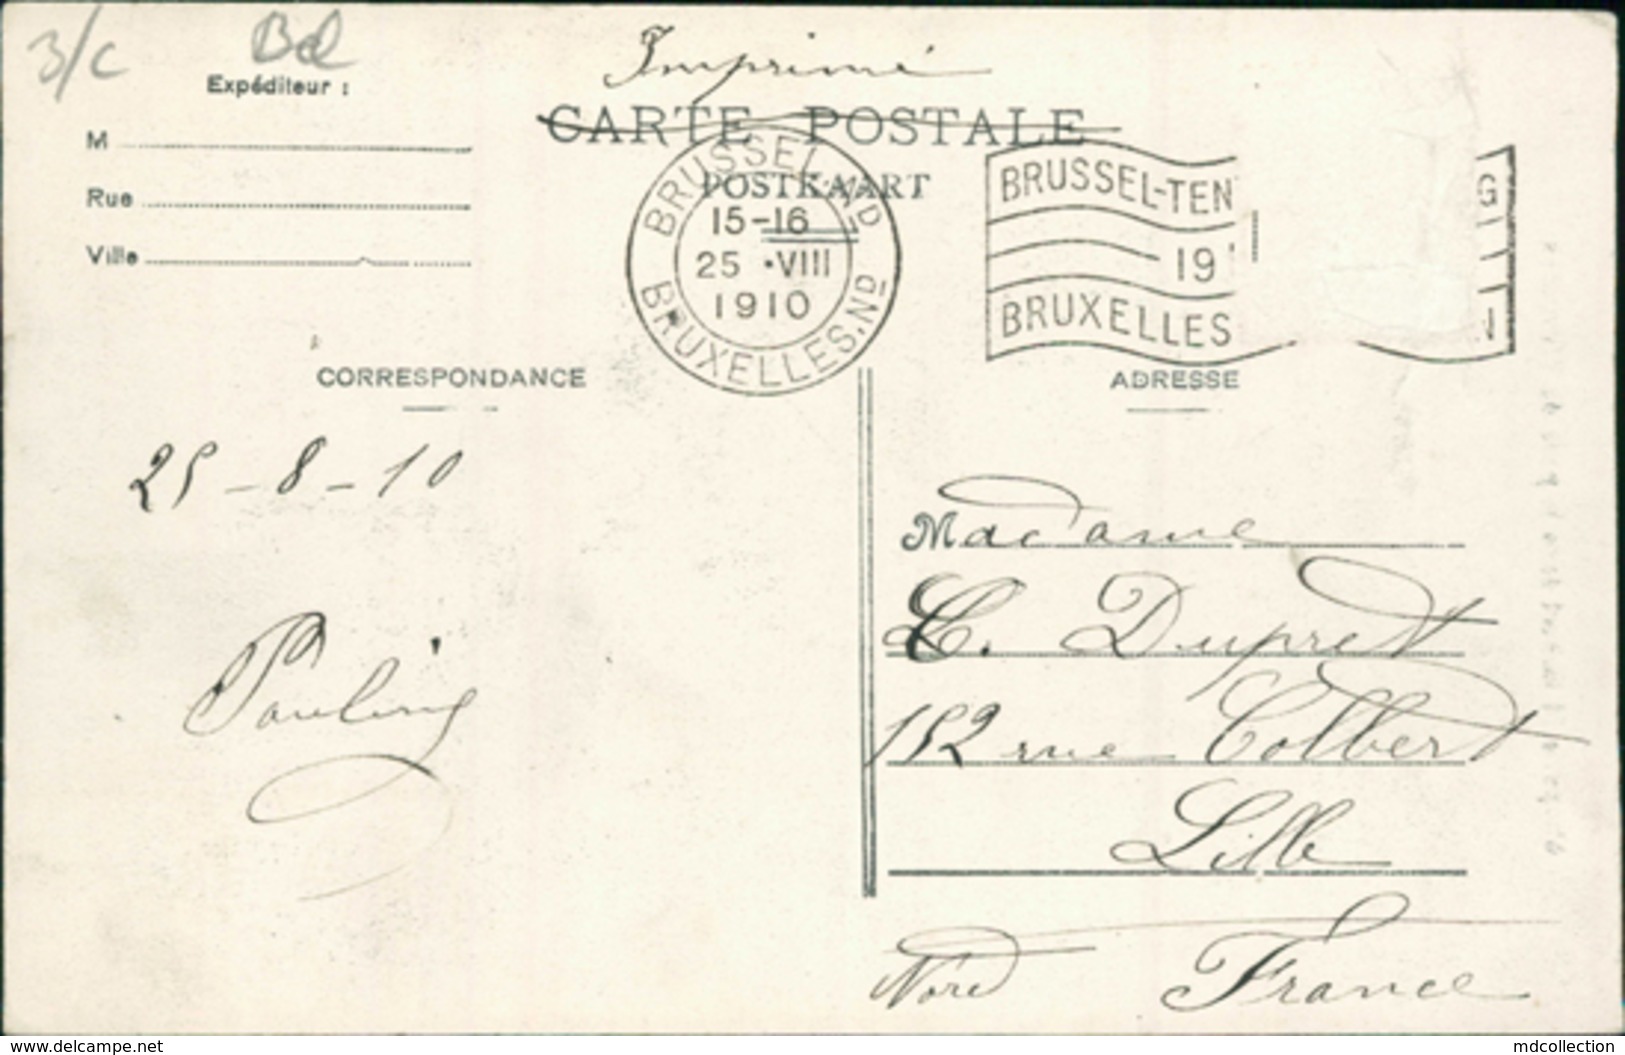 3/c
Bel
Imprimé
Expéditeur :
CARTE POSTALE
POSTKAART
M
Rue
Ville
BRUSSEL.Nd
15-16
25 •VIII
1910
BRUXELLES.Nd
BRUSSEL-TEN
G
19
BRUXELLES
N
CORRESPONDANCE
ADRESSE
25-8-10
Pauline
Madame
C. Dupret
152 rue Colbert
Lille
Nord France
www.delcampe.net
mdcollection